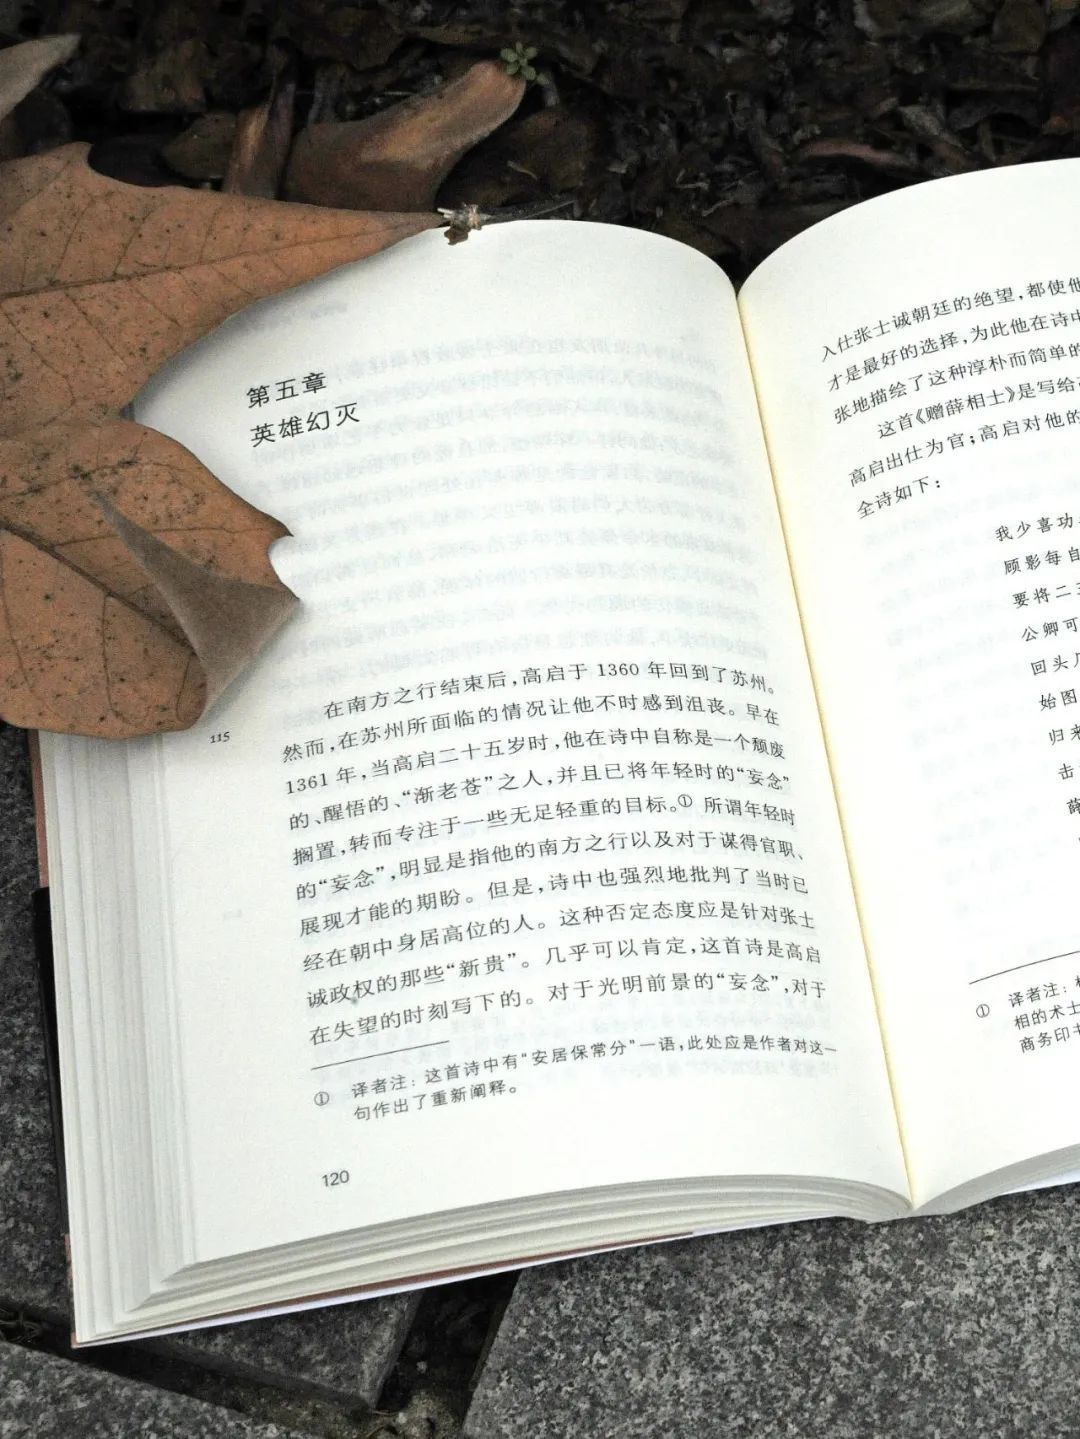 第五章
英雄幻灭
在南方之行结束后，高启于 1360 年回到了苏州。
然而，在苏州所面临的情况让他不时感到沮丧。早在
115
1361 年，当高启二十五岁时，他在诗中自称是一个颓废
的、醒悟的、“渐老苍”之人，并且已将年轻时的“妄念”
搁置，转而专注于一些无足轻重的目标。① 所谓年轻时
的“妄念”，明显是指他的南方之行以及对于谋得官职、
展现才能的期盼。但是，诗中也强烈地批判了当时已
经在朝中身居高位的人。这种否定态度应是针对张士
诚政权的那些“新贵”。几乎可以肯定，这首诗是高启
在失望的时刻写下的。对于光明前景的“妄念”，对于
① 译者注：这首诗中有“安居保常分”一语，此处应是作者对这一
句作出了重新阐释。
120
入仕张士诚朝廷的绝望，都使他
才是最好的选择，为此他在诗中
张地描绘了这种淳朴而简单的
这首《赠薛相士》是写给
高启出仕为官；高启对他的
全诗如下：
我少喜功
顾影每自
要将二三
公卿可
回头
始图
归来
击
薛
① 译者注：
相的术士
商务印书